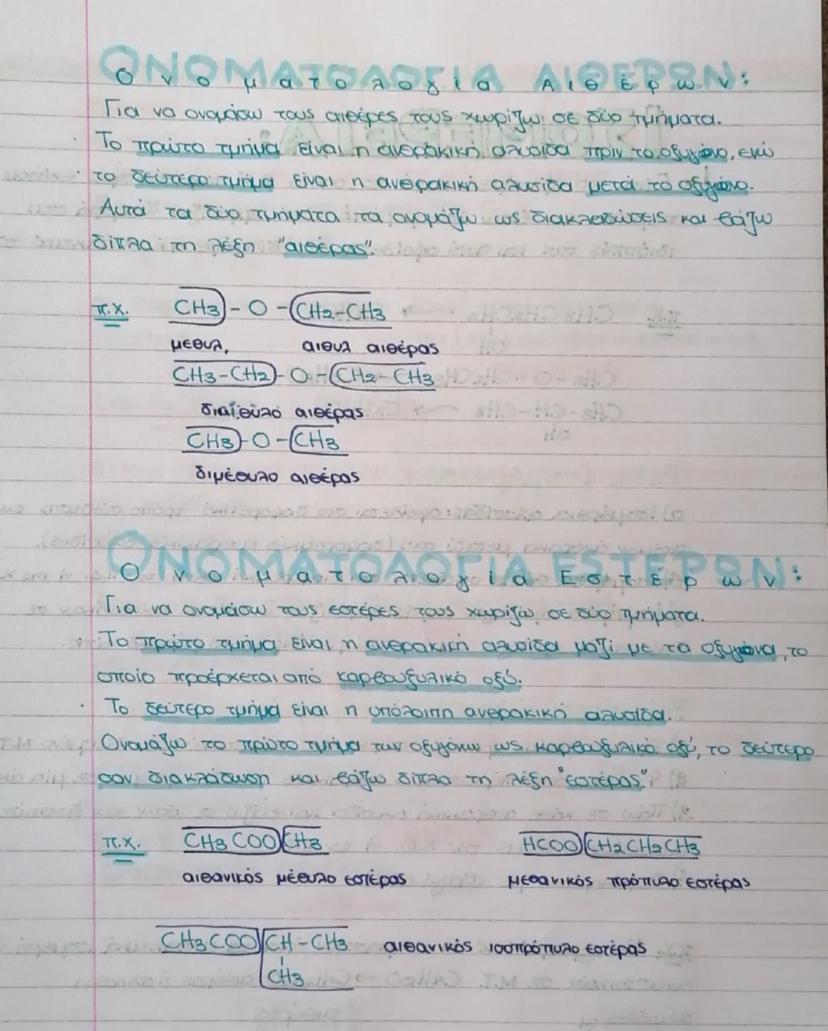 Ονοματολογία Αιθέρων:
Για να ονομάσω τους αιθέρες τους χωρίζω σε δύο τμήματα.
· Το πρώτο τμήμα είναι η ανθρακική αλυσίδα πριν το οξυγόνο, ενώ
· το δεύτερο τμήμα είναι η ανθρακική αλυσίδα μετά το οξυγόνο.
Αυτά τα δύο τμήματα τα ονομάζω ως διακλαδώσεις και βάζω
δίπλα τη λέξη "αιθέρας".
π.χ. CH3 - O - CH2-CH3
μεθυλ, αιθυλ αιθέρας
CH3-CH2 - O - CH2-CH3
διαίθυλο αιθέρας
CH3 - O - CH3
διμέθυλο αιθέρας
Ονοματολογία Εστέρων:
Για να ονομάσω τους εστέρες τους χωρίζω σε δύο τμήματα.
· Το πρώτο τμήμα είναι η ανθρακική αλυσίδα μαζί με τα οξυγόνα, το
οποίο προέρχεται από καρβοξυλικό οξύ.
· Το δεύτερο τμήμα είναι η υπόλοιπη ανθρακική αλυσίδα.
Ονομάζω το πρώτο τμήμα των οξυγόνων ως καρβοξυλικό οξύ, το δεύτερο
σαν διακλάδωση και βάζω δίπλα τη λέξη "εστέρας".
π.χ. CH3COO CH3 HCOO CH2CH2CH3
αιθανικός μέθυλο εστέρας μεθανικός πρόπυλο εστέρας
CH3COO CH-CH3 αιθανικός ισοπρόπυλο εστέρας
CH3